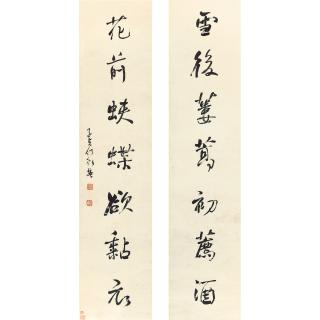 雪後蔞蒿初薦酒
花前蛺蝶欲黏衣